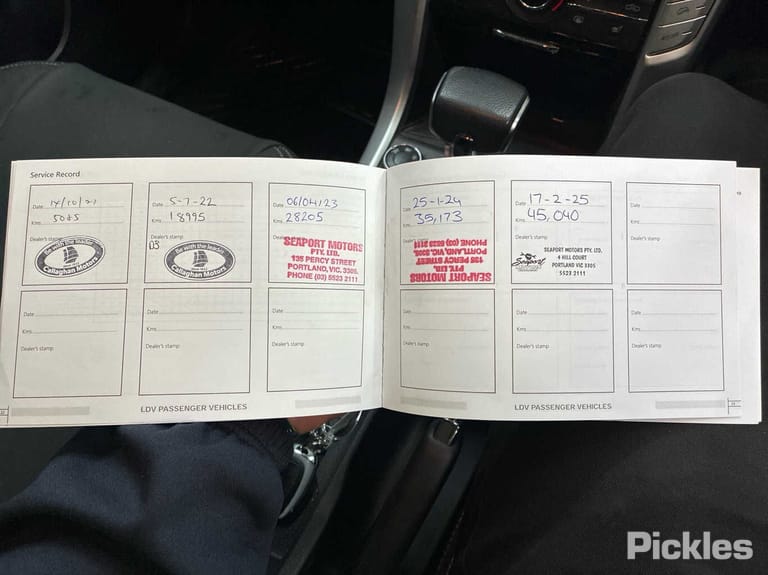 Service Record
Date 14/10/21
Kms 5085
Dealer's stamp
Be with the leader
Callaghan Motors
Date 5-7-22
Kms 18995
Dealer's stamp
Be with the leader
Callaghan Motors
Date 06/04/23
Kms 28205
Dealer's stamp
SEAPORT MOTORS
PTY. LTD.
135 PERCY STREET
PORTLAND, VIC. 3305.
PHONE (03) 5523 2111
Date 25-1-24
Kms 35,173
Dealer's stamp
SEAPORT MOTORS
PTY. LTD.
135 PERCY STREET
PORTLAND, VIC. 3305.
PHONE (03) 5523 2111
Date 17-2-25
Kms 45,040
Dealer's stamp
Seaport
SEAPORT MOTORS PTY. LTD.
4 HILL COURT
PORTLAND VIC 3305
5523 2111
Date
Kms
Dealer's stamp
Date
Kms
Dealer's stamp
Date
Kms
Dealer's stamp
Date
Kms
Dealer's stamp
Date
Kms
Dealer's stamp
Date
Kms
Dealer's stamp
Date
Kms
Dealer's stamp
LDV PASSENGER VEHICLES
LDV PASSENGER VEHICLES
Pickles